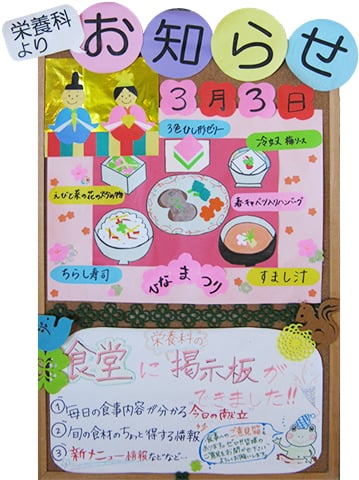 栄養科
より
お知らせ
3月3日
3色ひし形ゼリー
冷奴 梅ソース
えびと菜の花の炒め物
春キャベツ入りハンバーグ
ちらし寿司
ひなまつり
すまし汁
栄養科の
食堂に掲示板が
できました!!
①毎日の食事内容が分かる 今日の献立
②旬の食材のちょっと得する情報
③新メニュー情報などなど…
ご意見箱